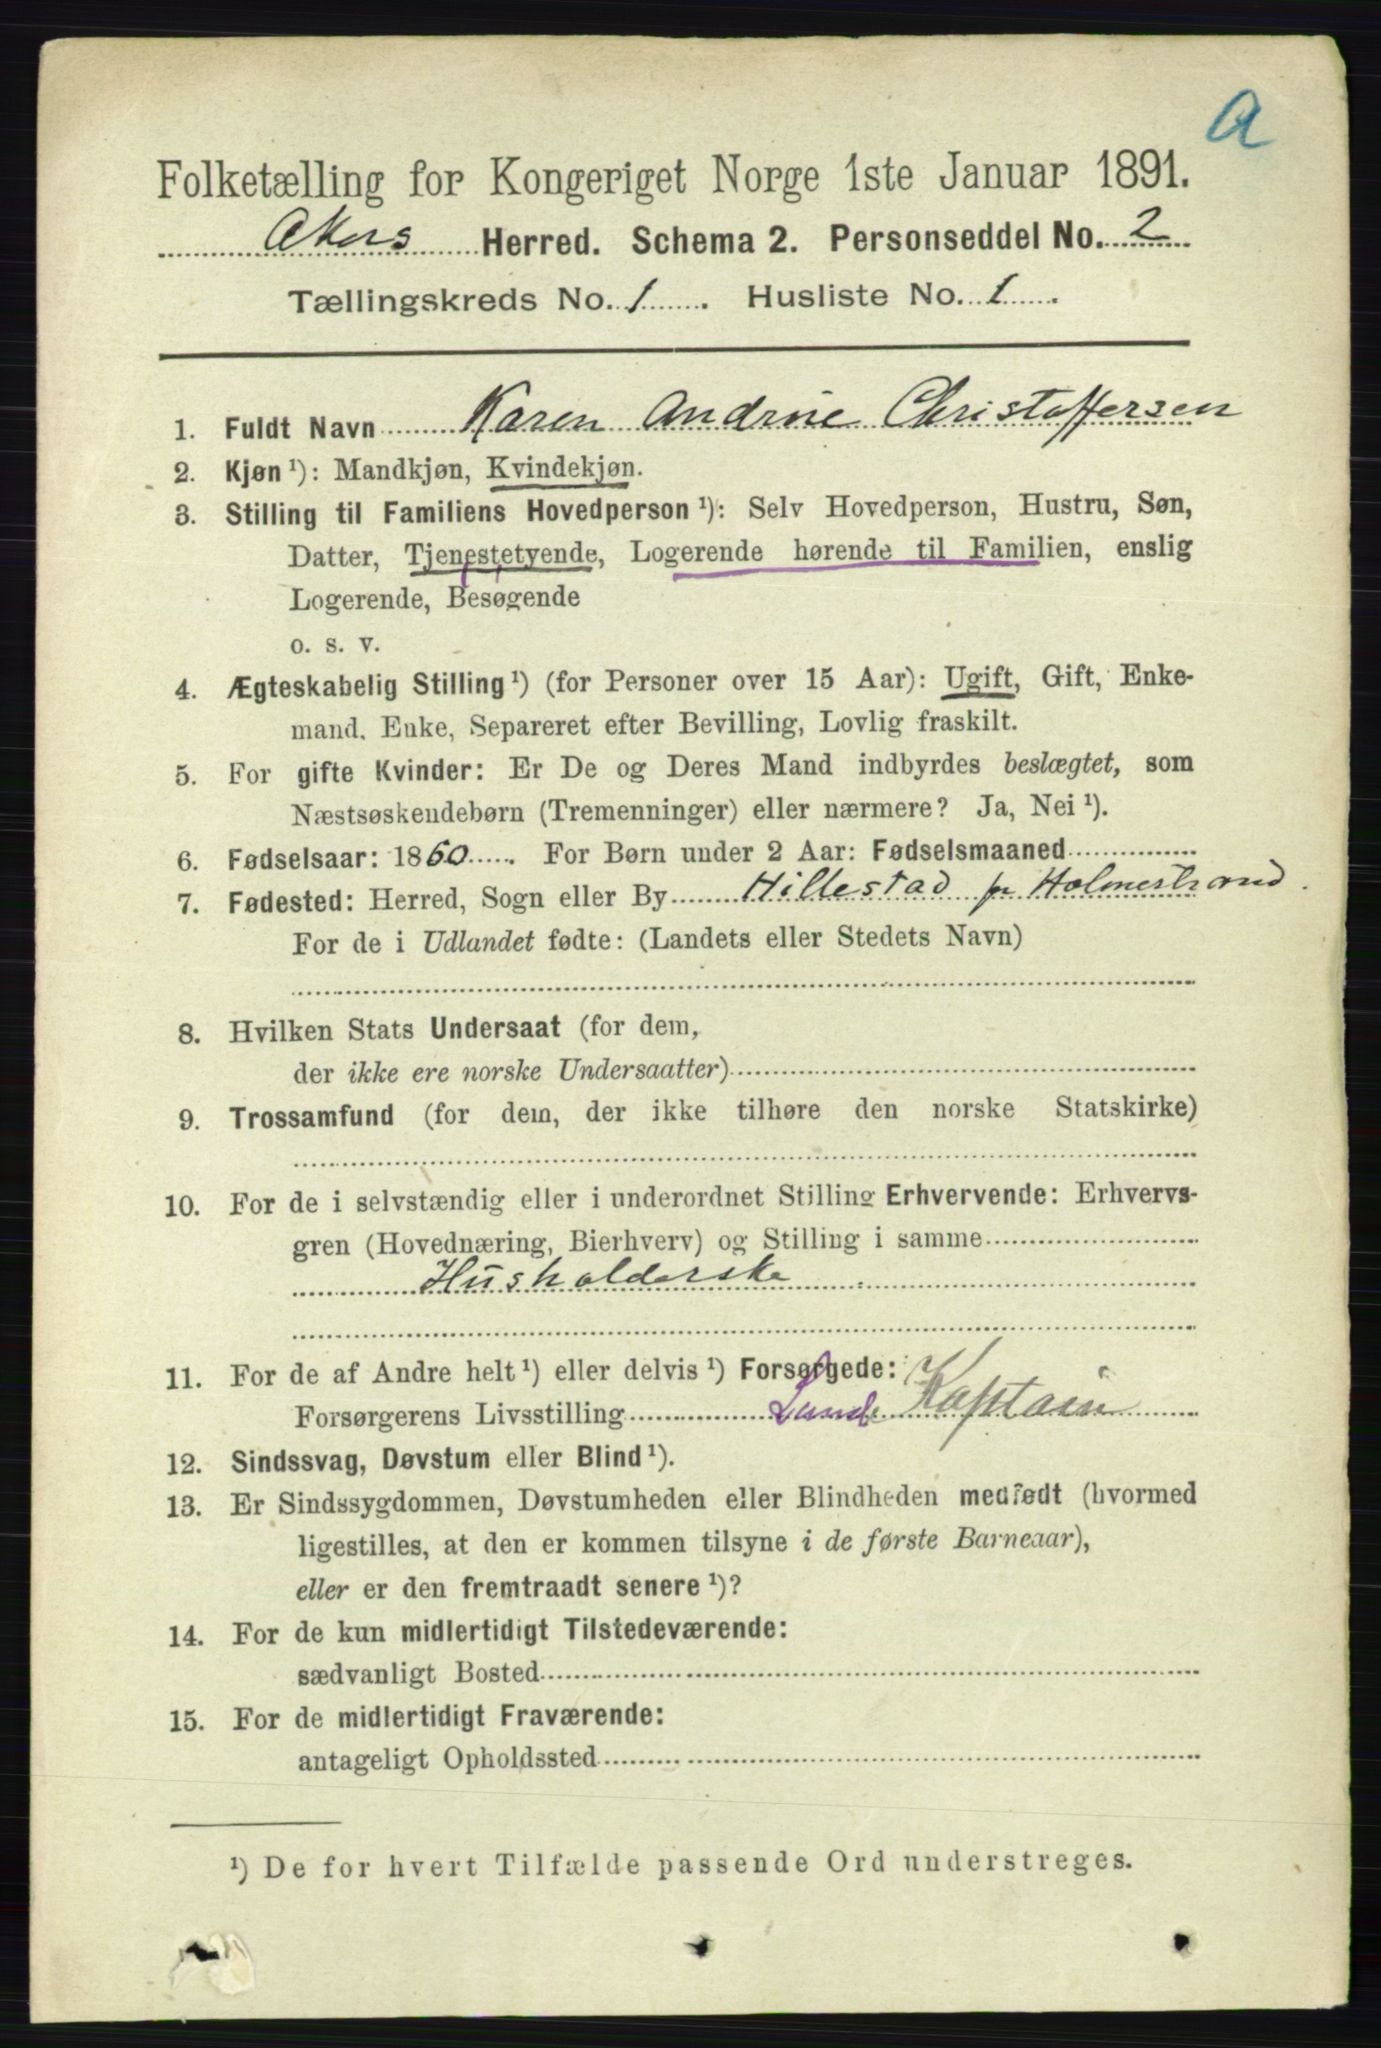 A
Folketælling for Kongeriget Norge 1ste Januar 1891.
Akers Herred. Schema 2. Personseddel No. 2
Tællingskreds No. 1. Husliste No. 1.
1. Fuldt Navn Karen Andrine Christoffersen
2. Kjøn ¹): Mandkjøn, Kvindekjøn.
3. Stilling til Familiens Hovedperson ¹): Selv Hovedperson, Hustru, Søn,
Datter, Tjenestetyende, Logerende hørende til Familien, enslig
Logerende, Besøgende
o. s. v.
4. Ægteskabelig Stilling ¹) (for Personer over 15 Aar): Ugift, Gift, Enke-
mand, Enke, Separeret efter Bevilling, Lovlig fraskilt.
5. For gifte Kvinder: Er De og Deres Mand indbyrdes beslægtet, som
Næstsøskendebørn (Tremenninger) eller nærmere? Ja, Nei ¹).
6. Fødselsaar: 1860. For Børn under 2 Aar: Fødselsmaaned
7. Fødested: Herred, Sogn eller By Hillestad pr Holmestrand.
For de i Udlandet fødte: (Landets eller Stedets Navn)
8. Hvilken Stats Undersaat (for dem,
der ikke ere norske Undersaatter)
9. Trossamfund (for dem, der ikke tilhøre den norske Statskirke)
10. For de i selvstændig eller i underordnet Stilling Erhvervende: Erhvervs-
gren (Hovednæring, Bierhverv) og Stilling i samme
Husholderske
11. For de af Andre helt ¹) eller delvis ¹) Forsørgede:
Forsørgerens Livsstilling Kaptain
12. Sindssvag, Døvstum eller Blind ¹).
13. Er Sindssygdommen, Døvstumheden eller Blindheden medfødt (hvormed
ligestilles, at den er kommen tilsyne i de første Barneaar),
eller er den fremtraadt senere ¹)?
14. For de kun midlertidigt Tilstedeværende:
sædvanligt Bosted
15. For de midlertidigt Fraværende:
antageligt Opholdssted
¹) De for hvert Tilfælde passende Ord understreges.